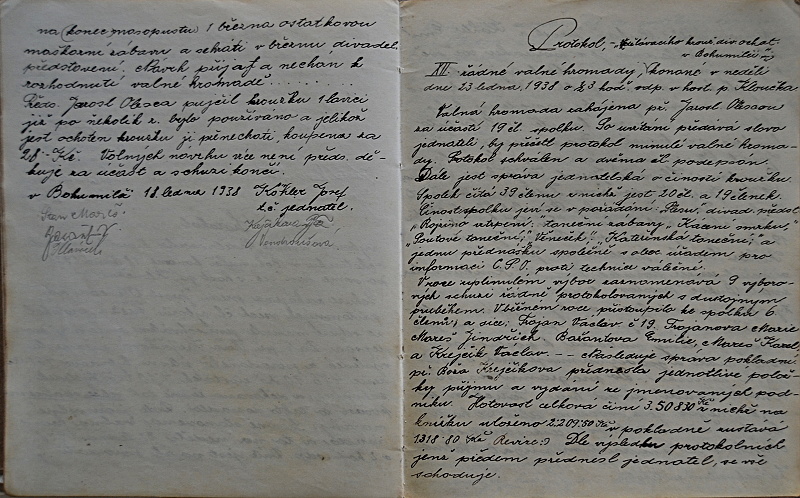 na (konec masopustu) 1 března ostatkovou
maškarní zábavu a sehrati v březnu divadel.
představení, Návrh přijat a nechán k
rozhodnutí valné hromadě . . . . . . . .
Předs. Jarosl Olesca pujčil kroužku 1 lavici
již po několik r. bylo používáno a jelikož
jest ochoten kroužku ji přenechati, koupena za
28 Kč. Volných návrhu více není předs. dě-
kuje za účast a schuzi končí.
v Bohumilči 18. ledna 1938 Köhler Josef
t.č. jednatel.
Mareš
Vondroušová
Protokol, - čtářského krouž. div. ochot.
v Bohumilči
XII. řádné valné hromady, konané v neděli
dne 23 ledna 1938 o ½3 hod. odp. v host. p. Kloučka
Valná hromada zahájena př. Jarosl Olessou
za účasti 19 čl. spolku. Po uvítání předává slovo
jednateli, by přečetl protokol minulé valné hroma-
dy. Protokol schválen a dvěma čl. podepsán.
Dále jest správa jednatelská o činosti kroužku.
Spolek čítá 39 členu z nichž jest 20 čl. a 19 členek.
Činost spolku jeví se v pořádání: Plesu, divad. předst.
„Rojino utrpení, taneční zábavy „Kácení smrku"
„Poutové taneční," „Věneček," „Kateřinská taneční; a
jednu přednášku společně s obec. úřadem pro
informaci C.P.O. proti technice válečné.
V roce uplinulém výbor zaznamenává 9 výboro-
vých schuzí řádně protokolovaných s dustojným
pruběhem. V běžném roce přistoupilo ke spolku 6
členů; a sice, Trojan Václav č 19. Trojanova Marie
Mareš Jindřich. Bařantova Emilie, Mareš Karel,
a Krejčík Václav. -- Následuje správa pokladní
př. Boža Krejčíkova přednesla jednotlivé polož-
ky příjmů a vydání ze jmenovaných pod-
niku. Hotovost celková činí 3.508 30 Kč z nichž na
knížku uloženo 2.209.50 Kč v pokladně zustává
1318·80 Kč Dle výsledku protokolních
jenž předem přednesl jednatel, se vše
schoduje.